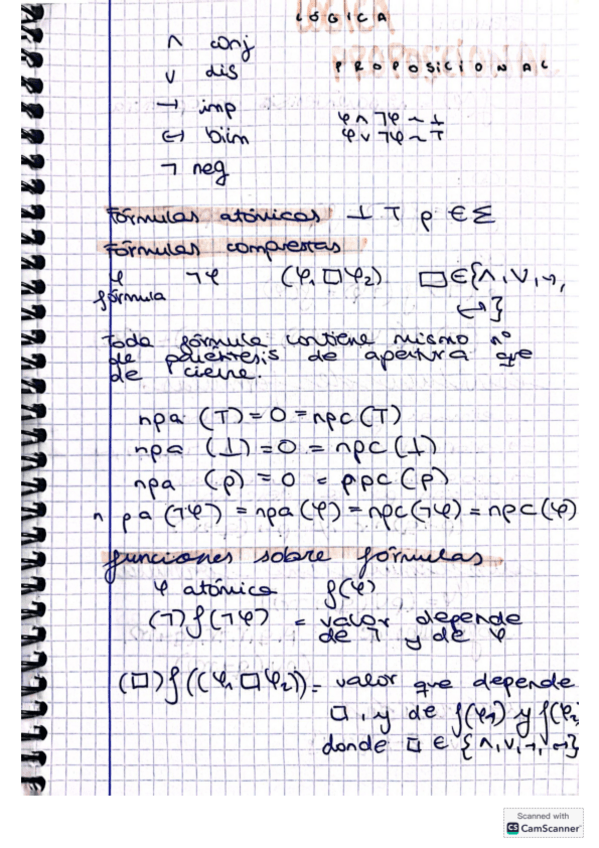 LÓGICA
PROPOSICIONAL
∧ conj
∨ dis
→ imp
↔ biim
¬ neg
φ ∧ ¬φ ~ ⊥
φ ∨ ¬φ ~ ⊤
Fórmulas atómicas ⊥ ⊤ p ∈ Σ
Fórmulas compuestas
φ ¬φ (φ₁ □ φ₂) □ ∈ {∧, ∨, →,
fórmula ↔}
Toda fórmula contiene mismo nº
de paréntesis de apertura que
de cierre.
npa (⊤) = 0 = npc (⊤)
npa (⊥) = 0 = npc (⊥)
npa (p) = 0 = ppc (p)
n pa (¬φ) = npa (φ) = npc (¬φ) = npc (φ)
funciones sobre fórmulas
φ atómica f(φ)
(¬) f(¬φ) = valor depende
de ¬ y de φ
(□) f((φ₁ □ φ₂)) = valor que depende
□, y de f(φ₁) y f(φ₂
donde □ ∈ {∧, ∨, →, ↔}
Scanned with
CS CamScanner